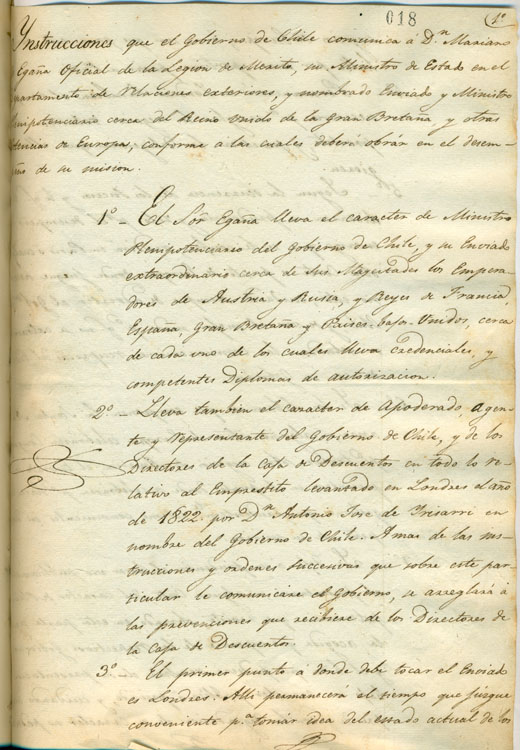 018
1º
Ynstrucciones que el Gobierno de Chile comunica á D.n Mariano
Egaña Oficial de la Legion de Merito, su Ministro de Estado en el
partamento de Relaciones exteriores, y nombrado Enviado y Ministro
nipotenciario cerca del Reino Unido de la Gran Bretaña, y otras
tencias de Europa; conforme a las cuales deberá obrár en el desem-
ño de su mision.
1º - El Sor Egaña lleva el caracter de Ministro
Plenipotenciario del Gobierno de Chile, y su Enviado
extraordinario cerca de Sus Magestades los Empera-
dores de Austria y Rusia, y Reyes de Francia,
España, Gran Bretaña y Paises-bajos-Unidos, cerca
de cada uno de los cuales lleva credenciales, y
competentes Diplomas de autorizacion.
2º - Lleva tambien el caracter de Apoderado, Agen-
te y Representante del Gobierno de Chile, y de los
Directores de la Caja de Descuentos en todo lo re-
lativo al Emprestito levantado en Londres el año
de 1822 por D.n Antonio Jose de Yrisarri en
nombre del Gobierno de Chile. Amas de las ins-
trucciones y ordenes succesivas que sobre este par-
ticular le comunicáre el Gobierno, se arreglará á
las prevenciones que recibiere de los Directores de
la Caja de Descuentos.
3º El primer punto á donde debe tocar el Enviado
es Londres: Alli permanecerá el tiempo que juzgue
conveniente p.a tomár idea del estado actual de los